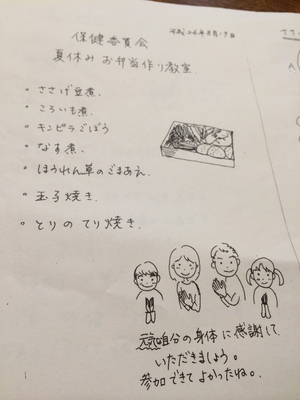 保健委員会
平成26年8月19日
夏休み お弁当作り教室
・ささげ豆煮.
・ころいも煮.
・キンピラごぼう
・なす煮.
・ほうれん草のごまあえ.
・玉子焼き.
・とりの てり焼き.
の身体に感謝して
いただきましょう。
参加できてよかったね。